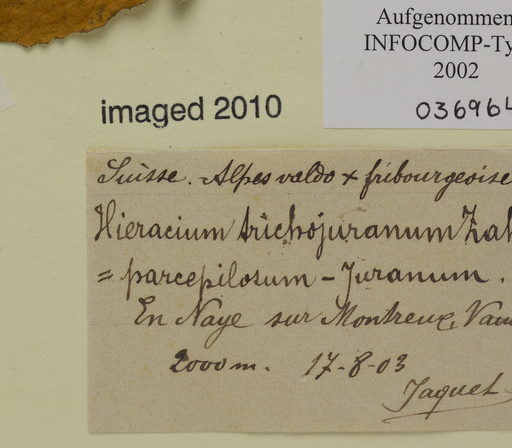 Aufgenommen
INFOCOMP-Ty
2002
036964
imaged 2010
Suisse. Alpes valdo + fribourgeoise
Hieracium trichojuranum Zah
= parcepilosum - Juranum.
En Naye sur Montreux, Vau
2000 m. 17-8-03
Jaquet